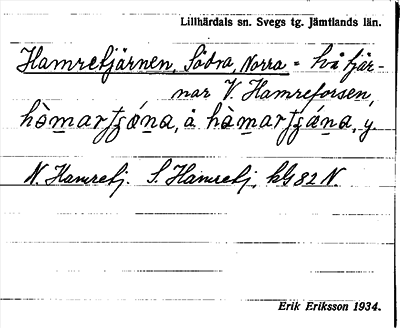 Lillhärdals sn. Svegs tg. Jämtlands län.
Hamretjärnen, Södra, Norra = två tjär-
nar V. Hamreforsen,
N. Hamretj. S. Hamretj. kG 82 N.
Erik Eriksson 1934.